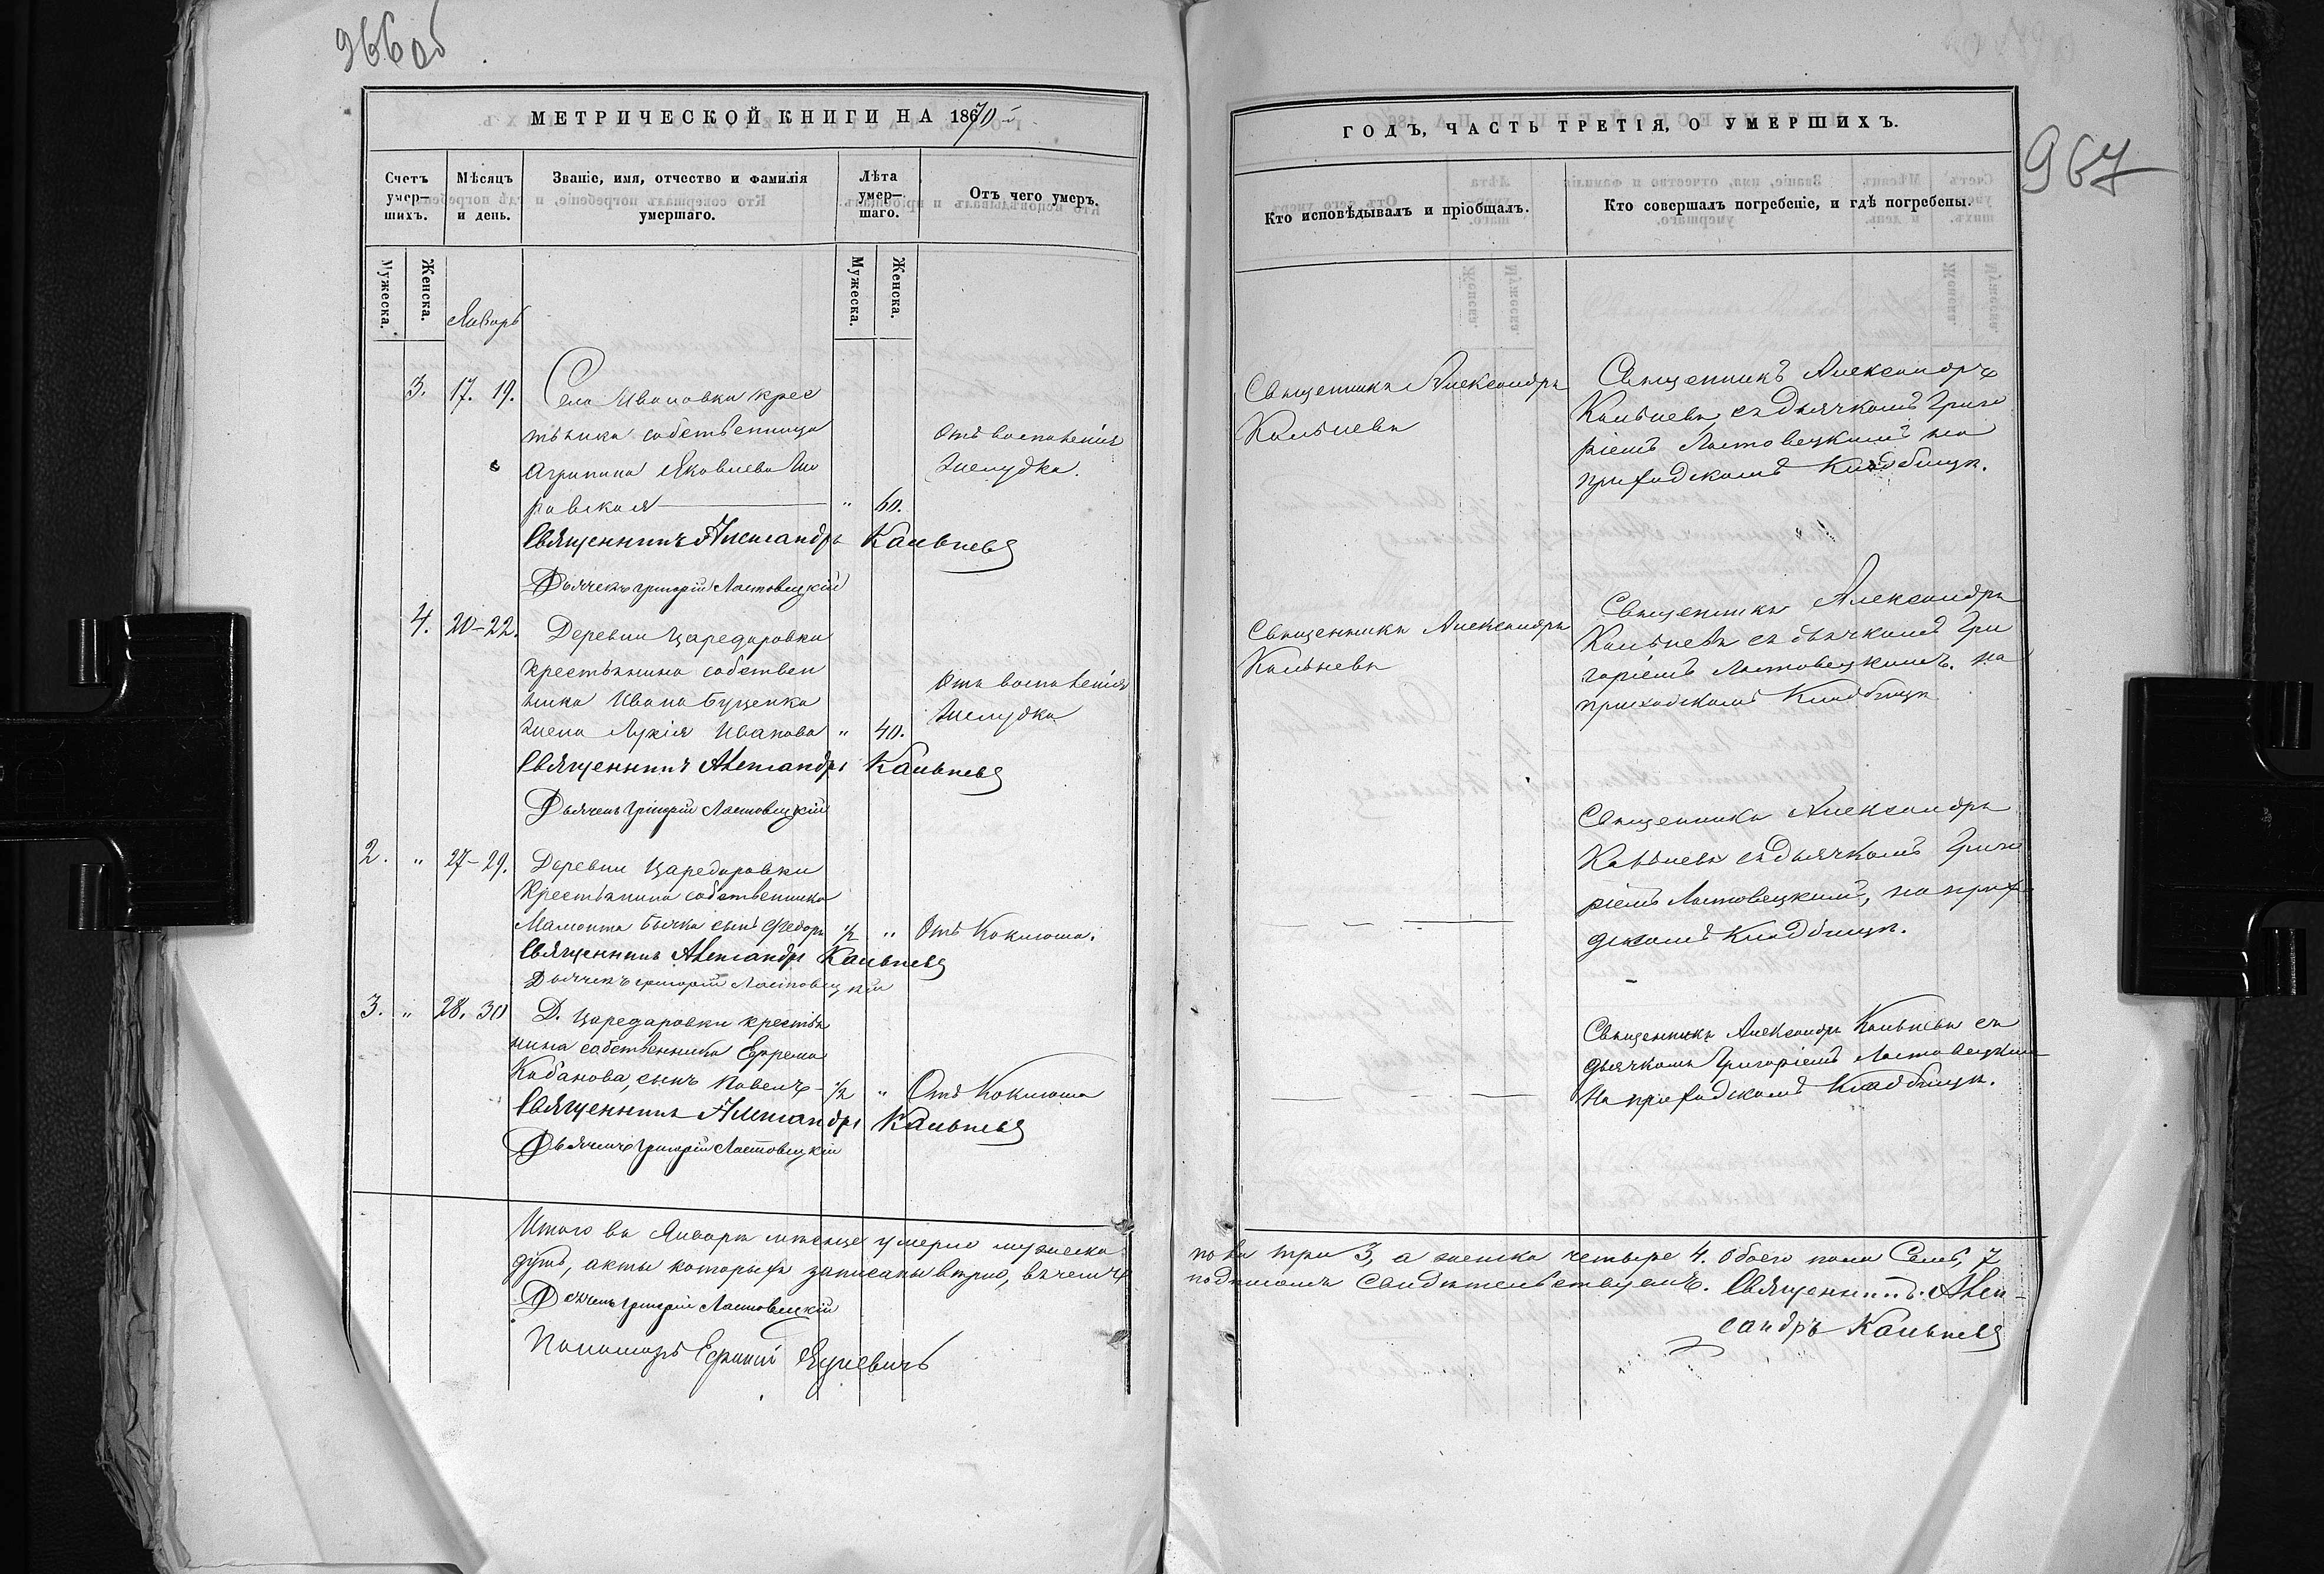 966 об
МЕТРИЧЕСКОЙ КНИГИ НА 1870
Счетъ умер-шихъ.
Мѣсяцъ и день.
Званіе, имя, отчество и фамилія умершаго.
Лѣта умер-шаго.
Отъ чего умеръ.
Мужеска.
Женска.
Мужеска.
Женска.
Январь
3. 17. 19. Села Ивановки крес
тьянка собственница
Агрипина Яковлева
равская " 60.
Отъ воспаленія
желудка.
Священникъ Александръ Кальневъ
Дьячекъ Григорій Ластовецкій
4. 20-22. Деревни Царедаровки
крестьянина собствен
ника Ивана Буценка
жена Лукія Иванова " 40.
Отъ воспаленія
желудка
Священникъ Александръ Кальневъ
Дьячекъ Григорій Ластовецкій
2. " 27-29. Деревни Царедаровки
Крестьянина собственника
Мамонта Бычка сынъ Федоръ 1/2 " Отъ Коклюша.
Священникъ Александръ Кальневъ
Дьячекъ Григорій Ластовецкій
3. " 28. 30 Д. Царедаровки крестья
нина собственника Ефрема
Кабанова, сынъ Павелъ 1/2 " Отъ Коклюша
Священникъ Александръ Кальневъ
Дьячекъ Григорій Ластовецкій
Итого въ Январѣ мѣсяце умерло мужеска
душъ, акты которыхъ записаны вѣрно, въ чемъ
Дьячекъ Григорій Ластовецкій
Пономарь Ефимій
967
ГОДЪ, ЧАСТЬ ТРЕТІЯ, О УМЕРШИХЪ.
Кто исповѣдывалъ и пріобщалъ.
Кто совершалъ погребеніе, и гдѣ погребены.
Священникъ Александръ
Кальневъ
Священникъ Александръ
Кальневъ съ дьячкомъ Григо
ріемъ Ластовецкимъ на
приходскомъ Кладбищѣ.
Священникъ Александръ
Кальневъ
Священникъ Александръ
Кальневъ съ дьячкомъ Гри
горіемъ Ластовецкимъ. на
приходскомъ Кладбищѣ
Священникъ Александръ
Кальневъ съ дьячкомъ Григо
ріемъ Ластовецкимъ, на прихо
дскомъ Кладбищѣ.
Священникъ Александръ Кальневъ съ
дьячкомъ Григоріемъ Ластовецкимъ
На приходскомъ Кладбищѣ.
пола три 3, а женска четыре 4. обоего пола Семь, 7
подписомъ свидѣтельствуемъ. Священникъ Алек-
сандръ Кальневъ